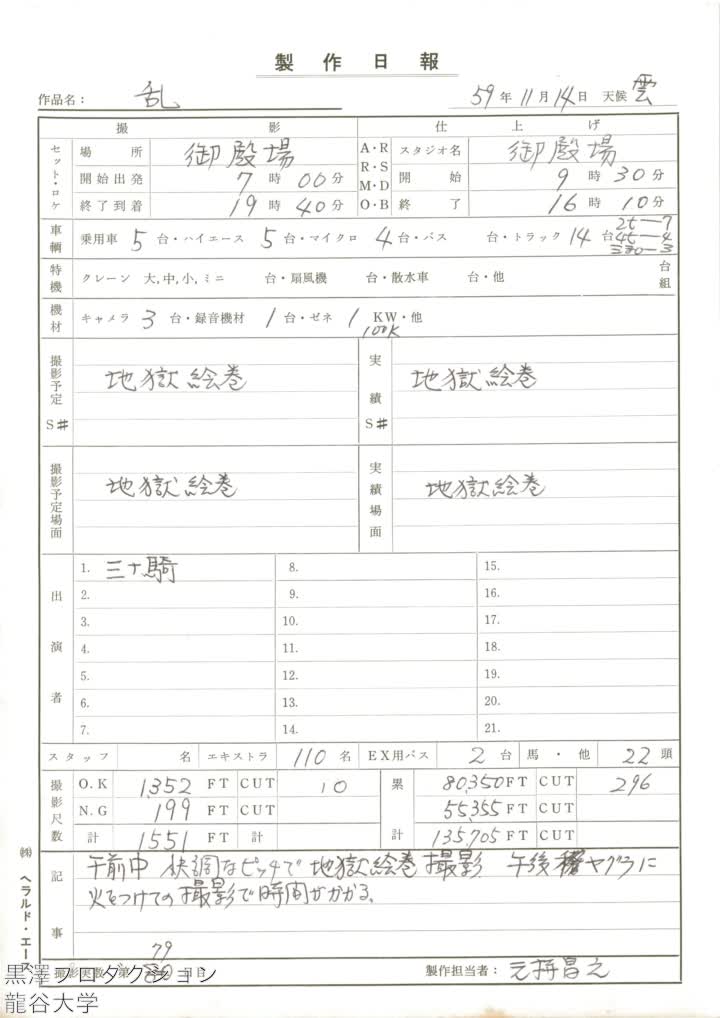 製作日報
作品名： 乱 59年11月14日 天候 雲
撮影 仕上げ
セット・ロケ 場所 御殿場 A・R スタジオ名 御殿場
開始出発 7時00分 R・S M・D 開始 9時30分
終了到着 19時40分 O・B 終了 16時10分
車輌 乗用車 5台・ハイエース 5台・マイクロ 4台・バス 台・トラック 14台 2t-7 4t-4
特機 クレーン 大,中,小,ミニ 台・扇風機 台・散水車 台・他 台組
機材 キャメラ 3台・録音機材 1台・ゼネ 1 KW・他
100K
撮影予定S# 地獄絵巻 実績S# 地獄絵巻
撮影予定場面 地獄絵巻 実績場面 地獄絵巻
出演者
1. 三十騎 8. 15.
2. 9. 16.
3. 10. 17.
4. 11. 18.
5. 12. 19.
6. 13. 20.
7. 14. 21.
スタッフ 名 エキストラ 110名 EX用バス 2台 馬・他 22頭
撮影尺数 O.K 1,352 FT CUT 10 累計 80,350FT CUT 296
N.G 199 FT CUT 55,355 FT CUT
計 1551 FT 計 135,705 FT CUT
記事 午前中 快調なピッチで地獄絵巻撮影 午後 ヤグラに
火をつけての撮影で時間がかかる。
79
撮影実数 第 日目 製作担当者：元持昌之
㈱ ヘラルド・エース
黒澤プロダクション
龍谷大学